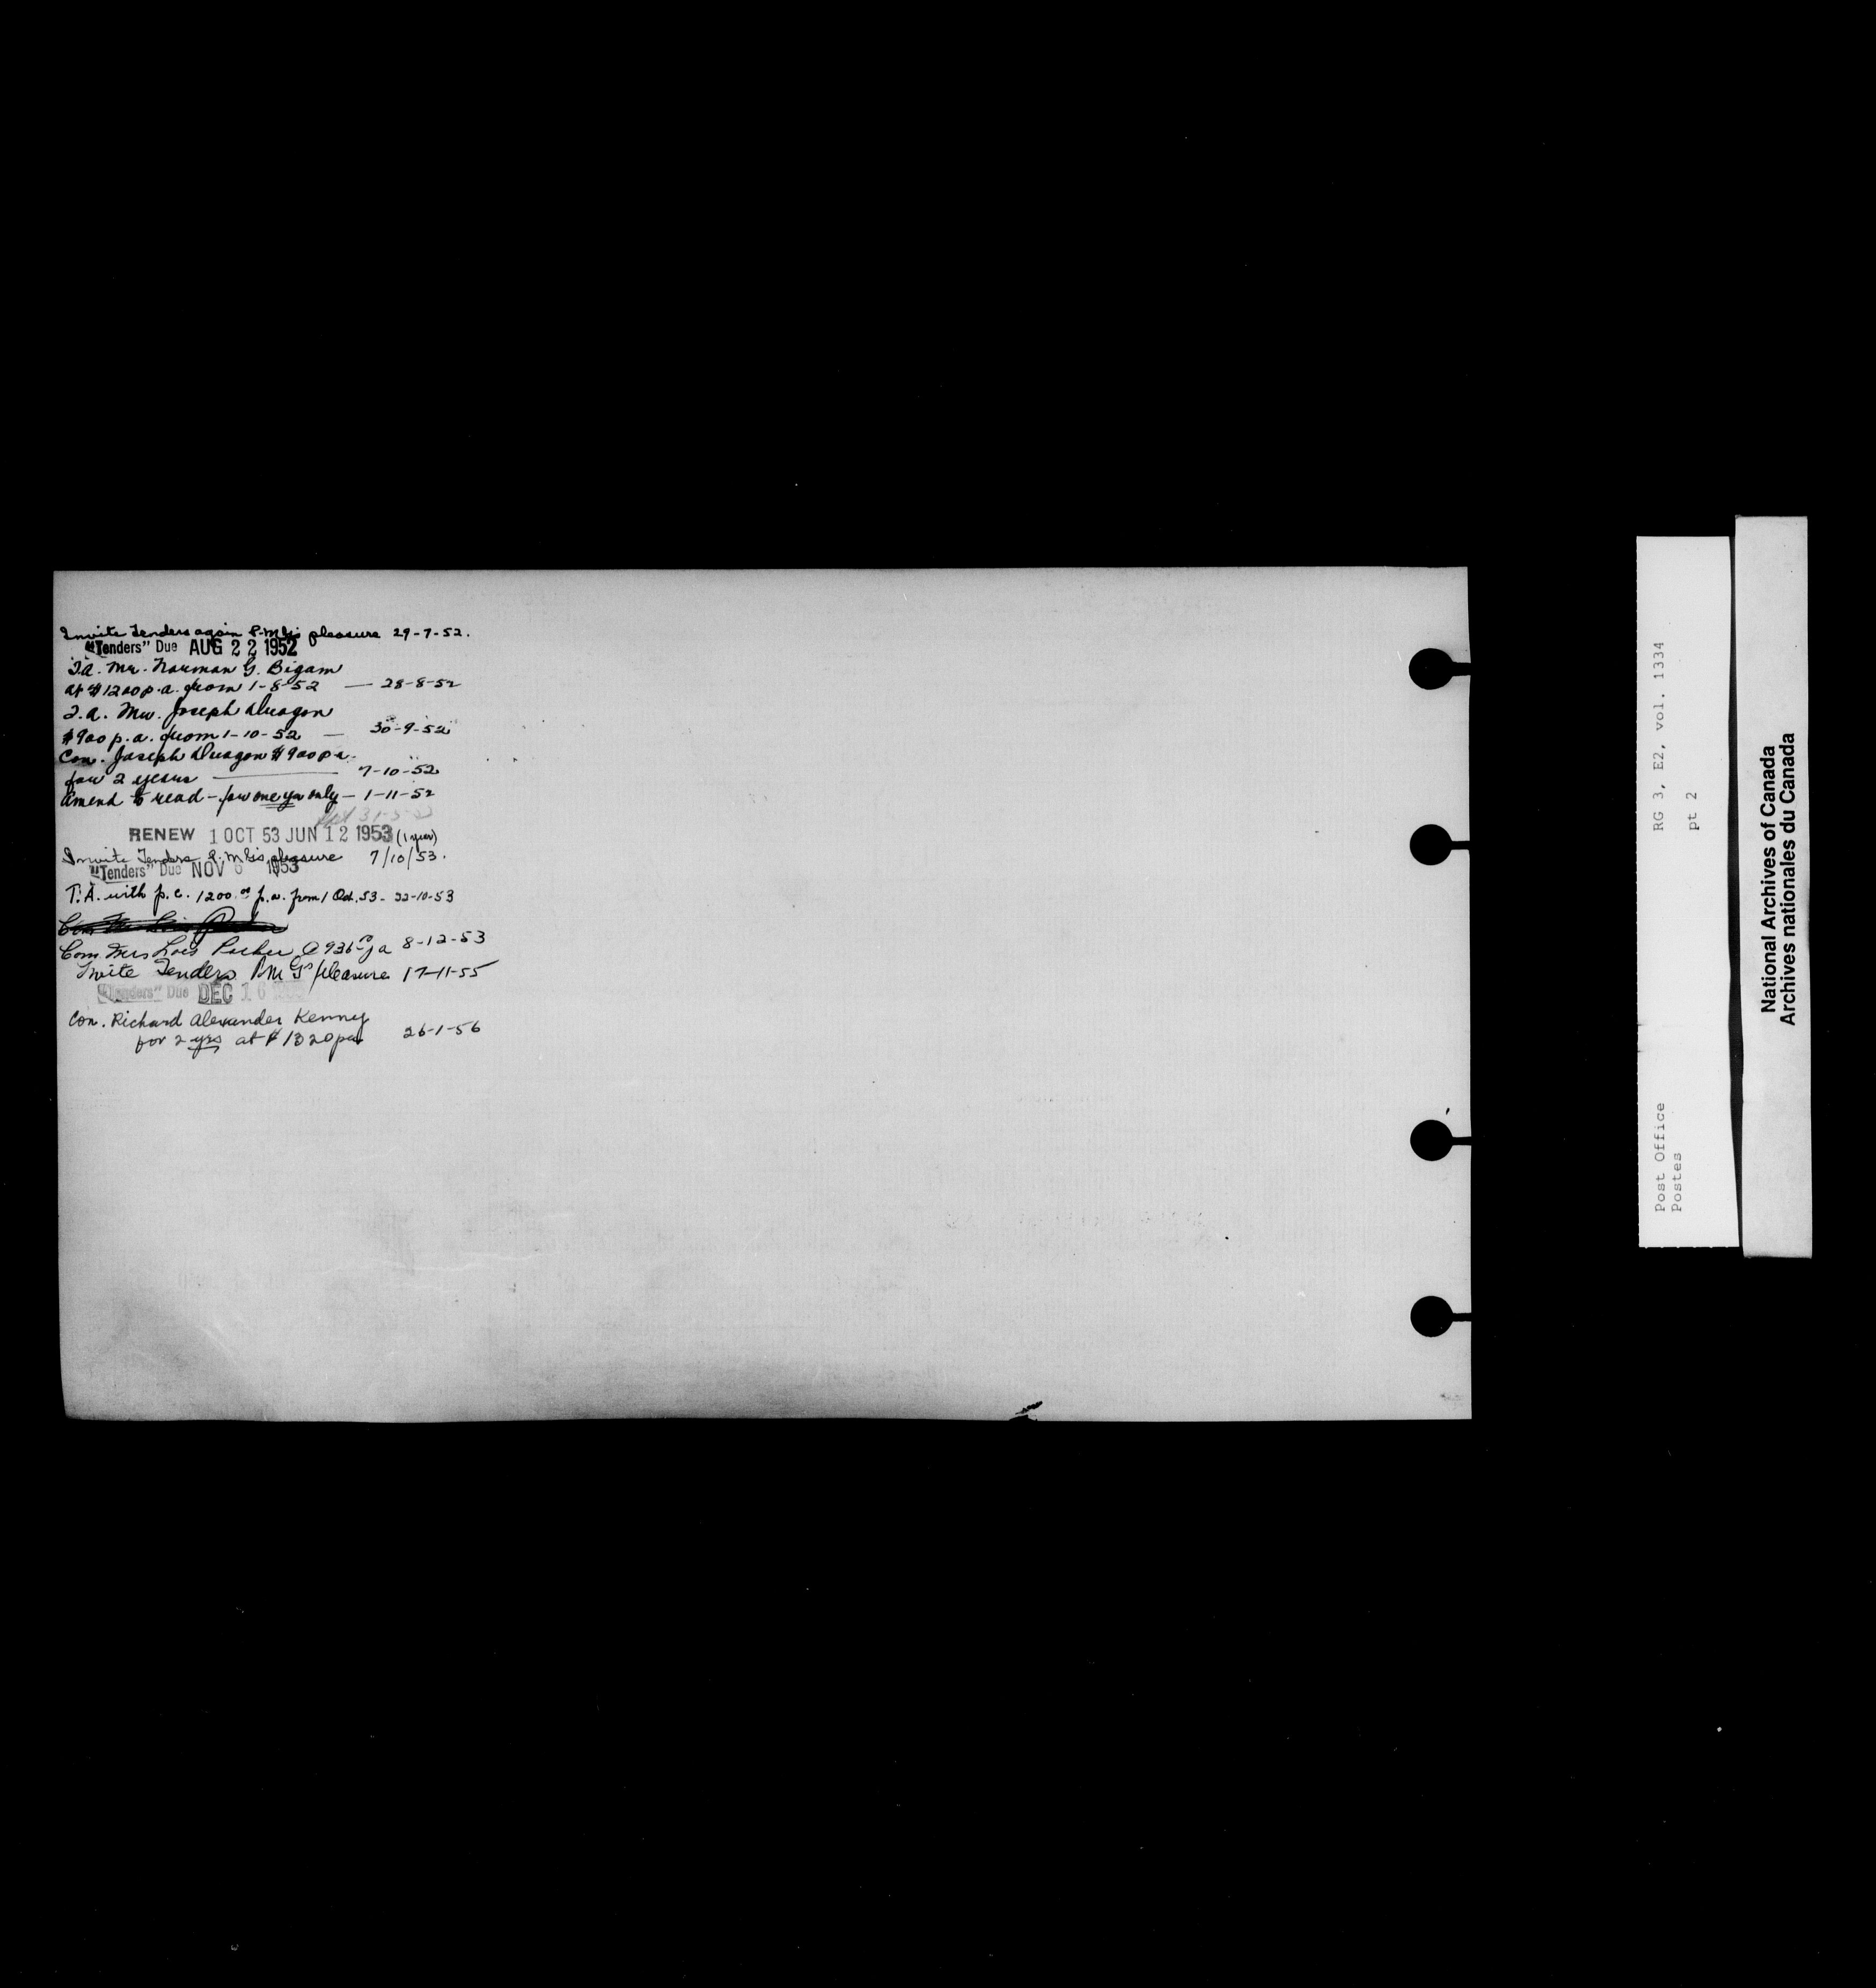 Invite Tenders again P.M.G's pleasure 29-7-52.
"Tenders" Due AUG 22 1952
T.A. Mr. Norman G. Bigam
at $1200 p.a. from 1-8-52 — 28-8-52
T.A. Mr. Joseph Dragon
$900 p.a. from 1-10-52 — 30-9-52
Con. Joseph Dragon $900 p.a.
for 2 years — 7-10-52
Amend to read - for one yr only - 1-11-52
RENEW 1 OCT 53 JUN 12 1953 (1 year)
Invite Tenders P.M.G's pleasure 7/10/53.
"Tenders" Due NOV 6 1953
T.A. with p.c. 1200.00 p.a. from 1 Oct. 53 - 22-10-53
Con Mrs Lois @ 936 pa 8-12-53
Invite Tenders P.M.G's pleasure 17-11-55
"Tenders" Due DEC 16
Con. Richard Alexander Kenny
for 2 yrs at $1320 pa 26-1-56
RG 3, E2, vol. 1334
pt 2
Post Office
Postes
National Archives of Canada
Archives nationales du Canada